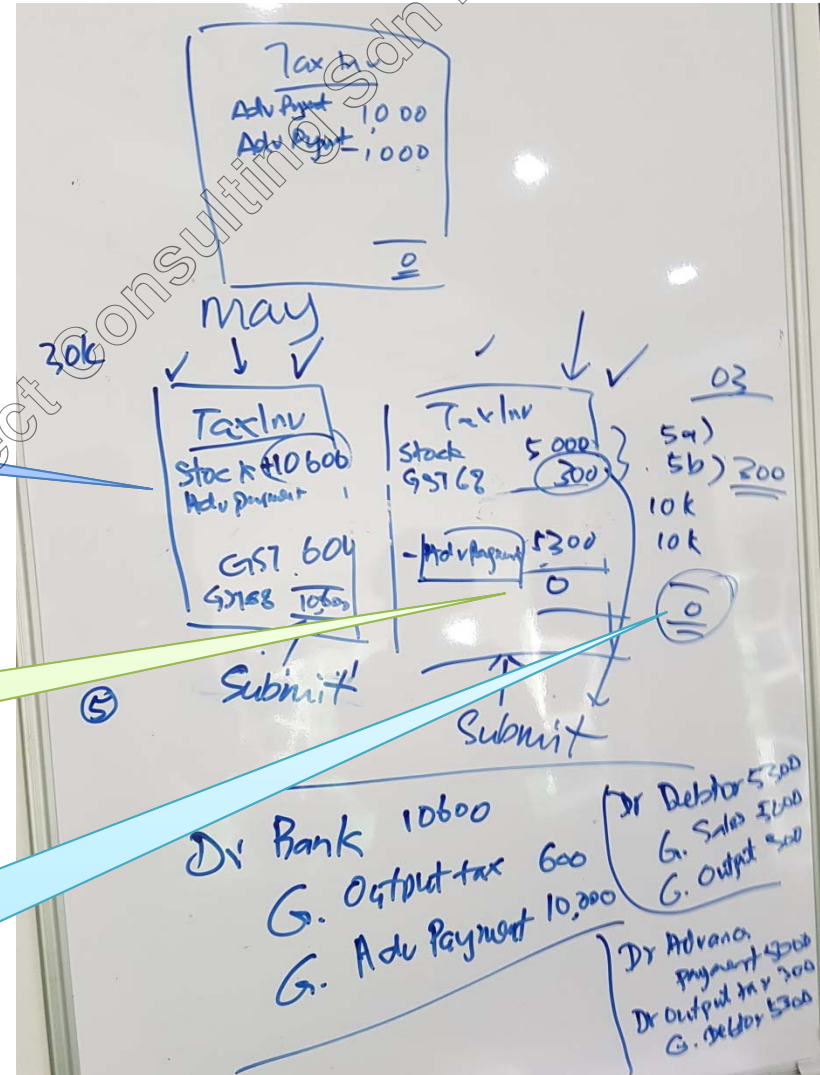 Consulting Sdn
Tax Inv
Adv Paymt 1,000
Adv Paymt -1,000
0
May
30k
Tax Inv
Stock 10600
Adv payment 1
GST 600
GST 6% 10,600
Submit
5
Tax Inv
Stock 5000
GST 6% 300
- Adv Payment 5300
0
Submit
03
5a)
5b) 300
10k
10k
0
Dr Bank 10600
G. Output tax 600
G. Adv Payment 10,000
Dr Debtor 5300
G. Sales 5000
G. Output 300
Dr Advance
payment 5000
Dr output tax 300
G. Debtor 5300